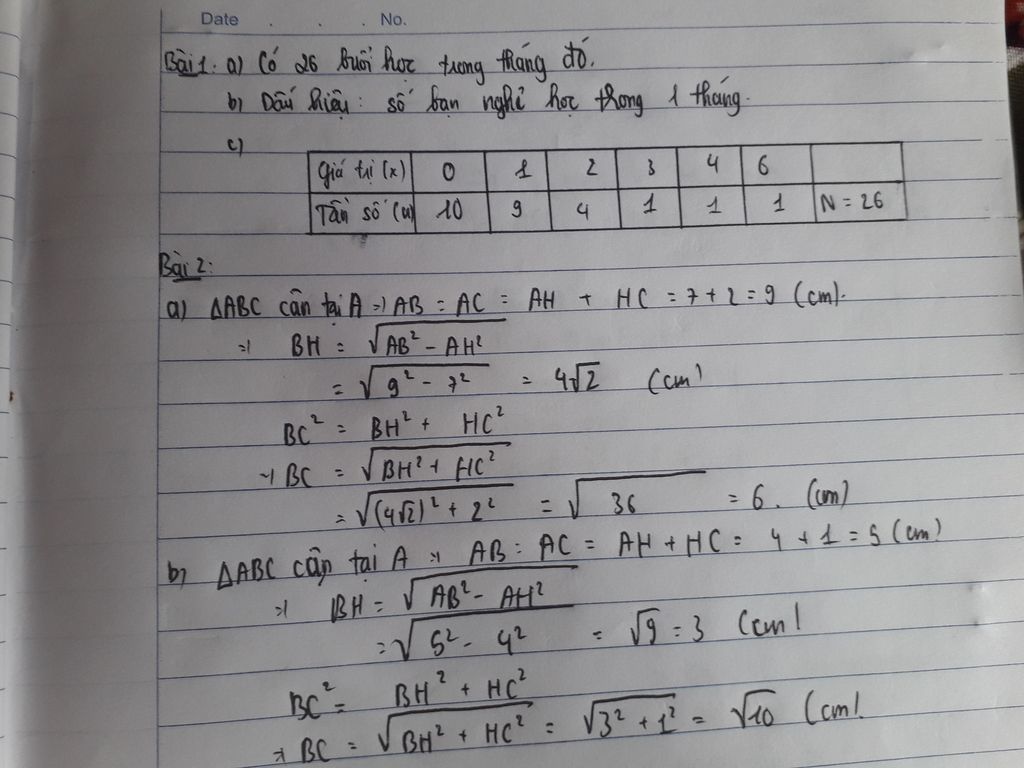 Date . . . No.
Bài 1: a) Có 26 buổi học trong tháng đó.
b) Dấu hiệu: số bạn nghỉ học trong 1 tháng.
c)
Giá trị (x) 0 1 2 3 4 6
Tần số (n) 10 9 4 1 1 1 N = 26
Bài 2:
a) ΔABC cân tại A ⇒ AB = AC = AH + HC = 7 + 2 = 9 (cm).
⇒ BH = √(AB² - AH²)
= √(9² - 7²) = 4√2 (cm)
BC² = BH² + HC²
⇒ BC = √(BH² + HC²)
= √((4√2)² + 2²) = √36 = 6. (cm)
b) ΔABC cân tại A ⇒ AB = AC = AH + HC = 4 + 1 = 5 (cm)
⇒ BH = √(AB² - AH²)
= √(5² - 4²) = √9 = 3 (cm)
BC² = BH² + HC²
⇒ BC = √(BH² + HC²) = √(3² + 1²) = √10 (cm).